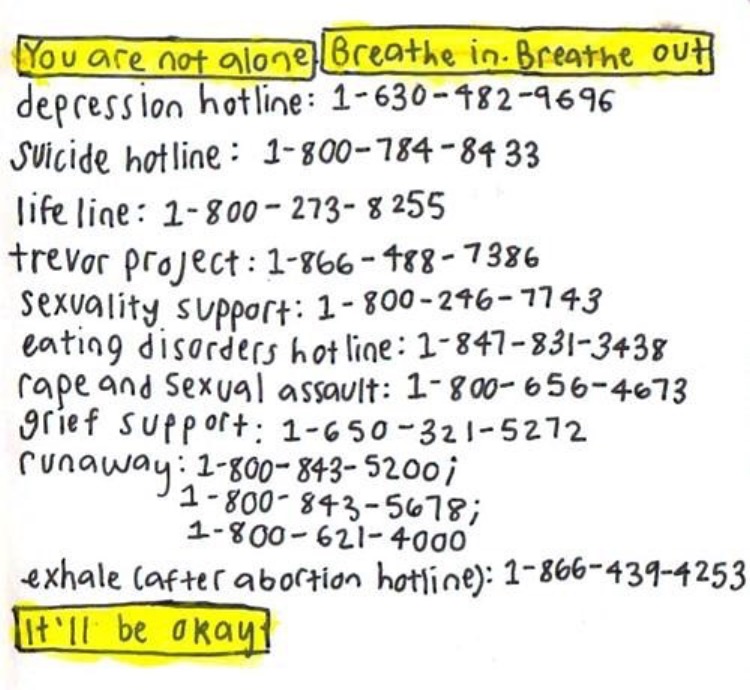 You are not alone. Breathe in. Breathe out
depression hotline: 1-630-482-9696
suicide hotline: 1-800-784-8433
life line: 1-800-273-8255
trevor project: 1-866-488-7386
sexuality support: 1-800-246-7743
eating disorders hotline: 1-847-831-3438
rape and sexual assault: 1-800-656-4673
grief support: 1-650-321-5272
runaway: 1-800-843-5200;
1-800-843-5678;
1-800-621-4000
exhale (after abortion hotline): 1-866-439-4253
It'll be okay!